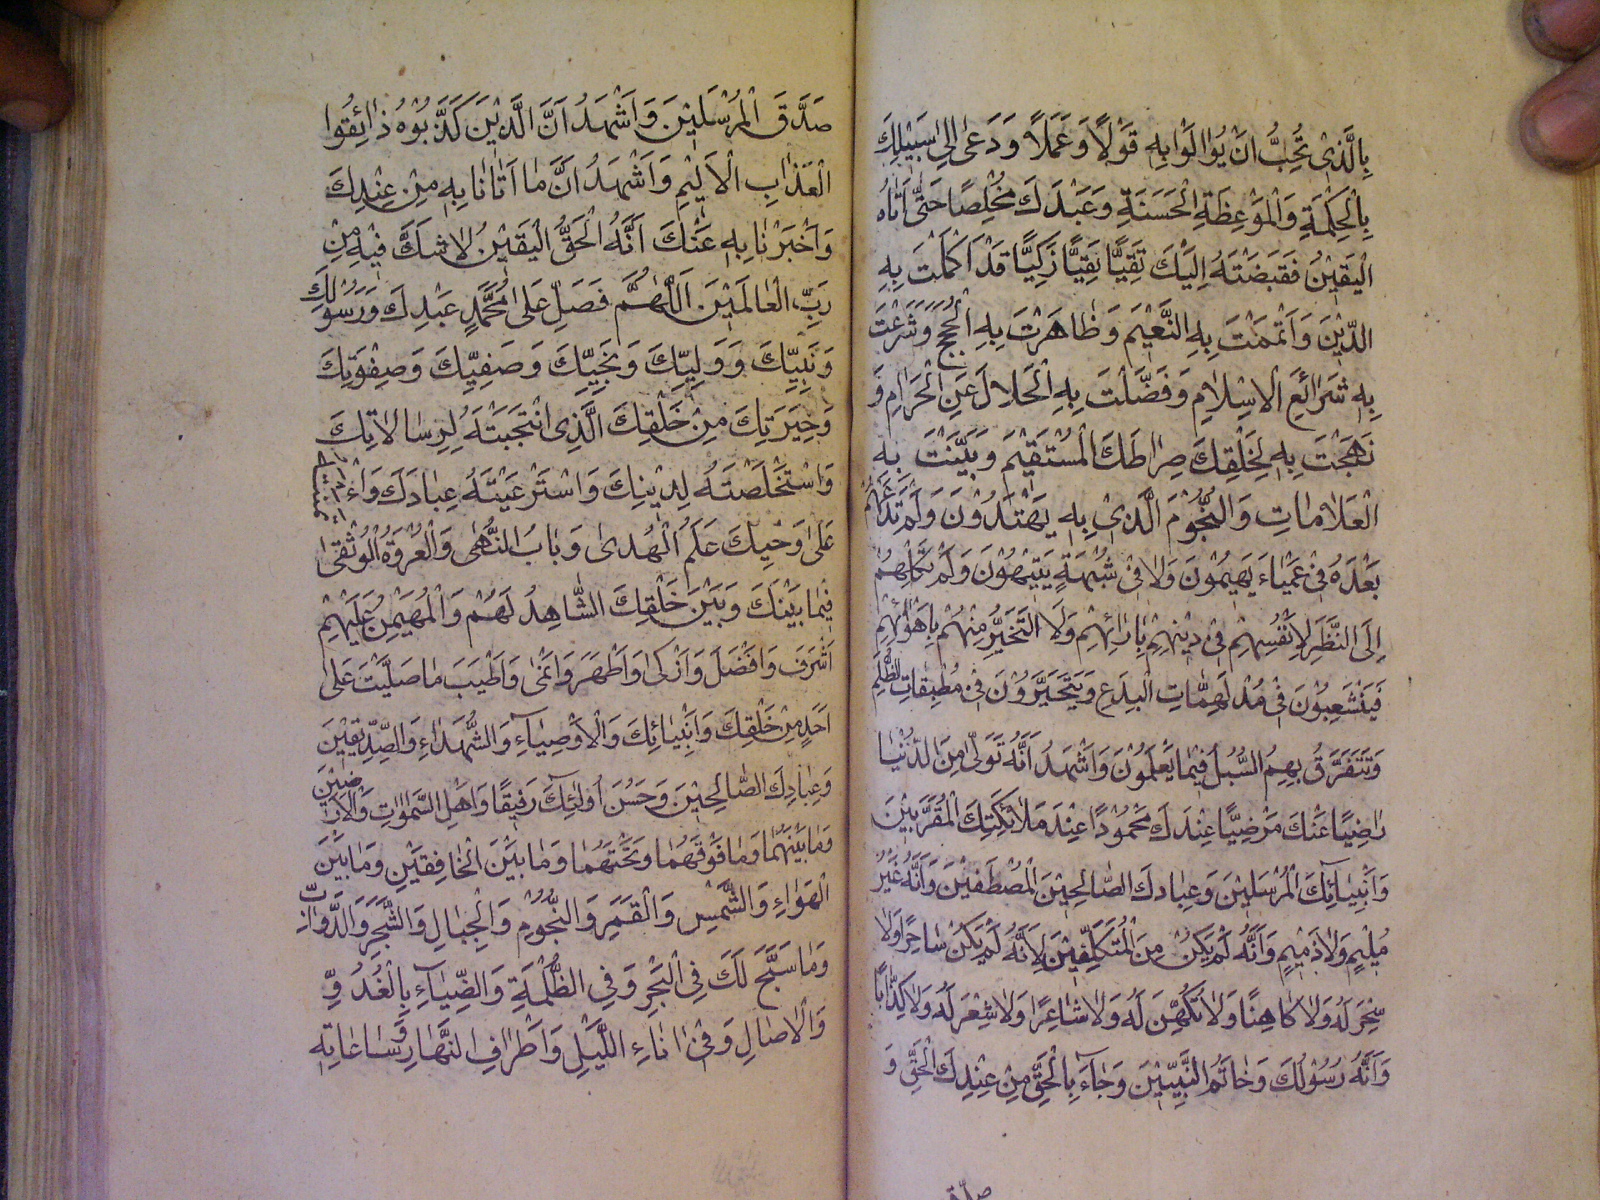 بِالَّذِيْ تُحِبُّ اَنْ يُوَالَوْا بِهِ قَوْلًا وَعَمَلًا وَدَعٰى اِلٰى سَبِيْلِكَ
بِالْحِكْمَةِ وَالْمَوْعِظَةِ الْحَسَنَةِ وَعَبَدَكَ مُخْلِصًا حَتّٰى اَتَاهُ
الْيَقِيْنُ فَقَبَضْتَهُ اِلَيْكَ تَقِيًّا نَقِيًّا زَكِيًّا قَدْ اَكْمَلْتَ بِهِ
الدِّيْنَ وَاَتْمَمْتَ بِهِ النَّعِيْمَ وَظَاهَرْتَ بِهِ الْحُجَجَ وَشَرَعْتَ
بِهِ شَرَائِعَ الْاِسْلَامِ وَفَصَّلْتَ بِهِ الْحَلَالَ عَنِ الْحَرَامِ وَ
نَهَجْتَ بِهِ لِخَلْقِكَ صِرَاطَكَ الْمُسْتَقِيْمَ وَبَيَّنْتَ بِهِ
الْعَلَامَاتِ وَالنُّجُوْمَ الَّذِيْ بِهِ يَهْتَدُوْنَ وَلَمْ تَدَعْهُمْ
بَعْدَهُ فِيْ عَمْيَاءَ يَهِيْمُوْنَ وَلَا فِيْ شُبْهَةٍ يَتِيْهُوْنَ وَلَمْ تَكِلْهُمْ
اِلَى النَّظَرِ لِاَنْفُسِهِمْ فِيْ دِيْنِهِمْ بِاٰرَائِهِمْ وَلَا التَّخَيُّرِ مِنْهُمْ بِاَهْوَائِهِمْ
فَيَتَشَعَّبُوْنَ فِيْ مُدْلَهِمَّاتِ الْبِدَعِ وَيَتَحَيَّرُوْنَ فِيْ مُطْبِقَاتِ الظُّلَمِ
وَتَتَفَرَّقُ بِهِمُ السُّبُلُ فِيْمَا يَعْلَمُوْنَ وَاَشْهَدُ اَنَّهُ تَوَلّٰى مِنَ الدُّنْيَا
رَاضِيًا عَنْكَ مَرْضِيًّا عِنْدَكَ مَحْمُوْدًا عِنْدَ مَلَائِكَتِكَ الْمُقَرَّبِيْنَ
وَاَنْبِيَائِكَ الْمُرْسَلِيْنَ وَعِبَادِكَ الصَّالِحِيْنَ الْمُصْطَفَيْنَ وَاَنَّهُ غَيْرُ
مُلِيْمٍ وَلَا ذَمِيْمٍ وَاَنَّهُ لَمْ يَكُنْ مِنَ الْمُتَكَلِّفِيْنَ لِاَنَّهُ لَمْ يَكُنْ سَاحِرًا وَلَا
سُخِرَ لَهُ وَلَا كَاهِنًا وَلَا تُكُهِّنَ لَهُ وَلَا شَاعِرًا وَلَا شُعِرَ لَهُ وَلَا كَذَّابًا
وَاَنَّهُ رَسُوْلُكَ وَخَاتَمُ النَّبِيِّيْنَ وَجَاءَ بِالْحَقِّ مِنْ عِنْدِكَ الْحَقِّ وَ
صَدَّقَ
صَدَّقَ الْمُرْسَلِيْنَ وَاَشْهَدُ اَنَّ الَّذِيْنَ كَذَّبُوْهُ ذَائِقُوا
الْعَذَابِ الْاَلِيْمِ وَاَشْهَدُ اَنَّ مَا اَتَانَا بِهِ مِنْ عِنْدِكَ
وَاَخْبَرْنَا بِهِ عَنْكَ اَنَّهُ الْحَقُّ الْيَقِيْنُ لَا شَكَّ فِيْهِ مِنْ
رَبِّ الْعَالَمِيْنَ اَللّٰهُمَّ فَصَلِّ عَلٰى مُحَمَّدٍ عَبْدِكَ وَرَسُوْلِكَ
وَنَبِيِّكَ وَوَلِيِّكَ وَنَجِيِّكَ وَصَفِيِّكَ وَصِفْوَتِكَ
وَخِيَرَتِكَ مِنْ خَلْقِكَ الَّذِي انْتَجَبْتَهُ لِرِسَالَاتِكَ
وَاسْتَخْلَصْتَهُ لِدِيْنِكَ وَاسْتَرْعَيْتَهُ عِبَادَكَ وَائْتَمَنْتَهُ
عَلٰى وَحْيِكَ عَلَمُ الْهُدٰى وَبَابُ النُّهٰى وَالْعُرْوَةُ الْوُثْقٰى
فِيْمَا بَيْنَكَ وَبَيْنَ خَلْقِكَ الشَّاهِدُ لَهُمْ وَالْمُهَيْمِنُ عَلَيْهِمْ
اَشْرَفَ وَافْضَلَ وَاَزْكٰى وَاَطْهَرَ وَاَنْمٰى وَاَطْيَبَ مَا صَلَّيْتَ عَلٰى
اَحَدٍ مِنْ خَلْقِكَ وَاَنْبِيَائِكَ وَالْاَوْصِيَاءِ وَالشُّهَدَاءِ وَالصِّدِّيْقِيْنَ
وَعِبَادِكَ الصَّالِحِيْنَ وَحَسُنَ اُولٰئِكَ رَفِيْقًا وَاَهْلِ السَّمٰوَاتِ وَالْاَرَضِيْنَ
وَمَا بَيْنَهُمَا وَمَا فَوْقَهُمَا وَتَحْتَهُمَا وَمَا بَيْنَ الْخَافِقَيْنِ وَمَا بَيْنَ
الْهَوَاءِ وَالشَّمْسِ وَالْقَمَرِ وَالنُّجُوْمِ وَالْجِبَالِ وَالشَّجَرِ وَالدَّوَابِّ
وَمَا سَبَّحَ لَكَ فِي الْبَحْرِ وَفِي الظُّلْمَةِ وَالضِّيَاءِ بِالْغُدُوِّ
وَالْاٰصَالِ وَفِيْ اٰنَاءِ اللَّيْلِ وَاَطْرَافِ النَّهَارِ وَسَاعَاتِهِ